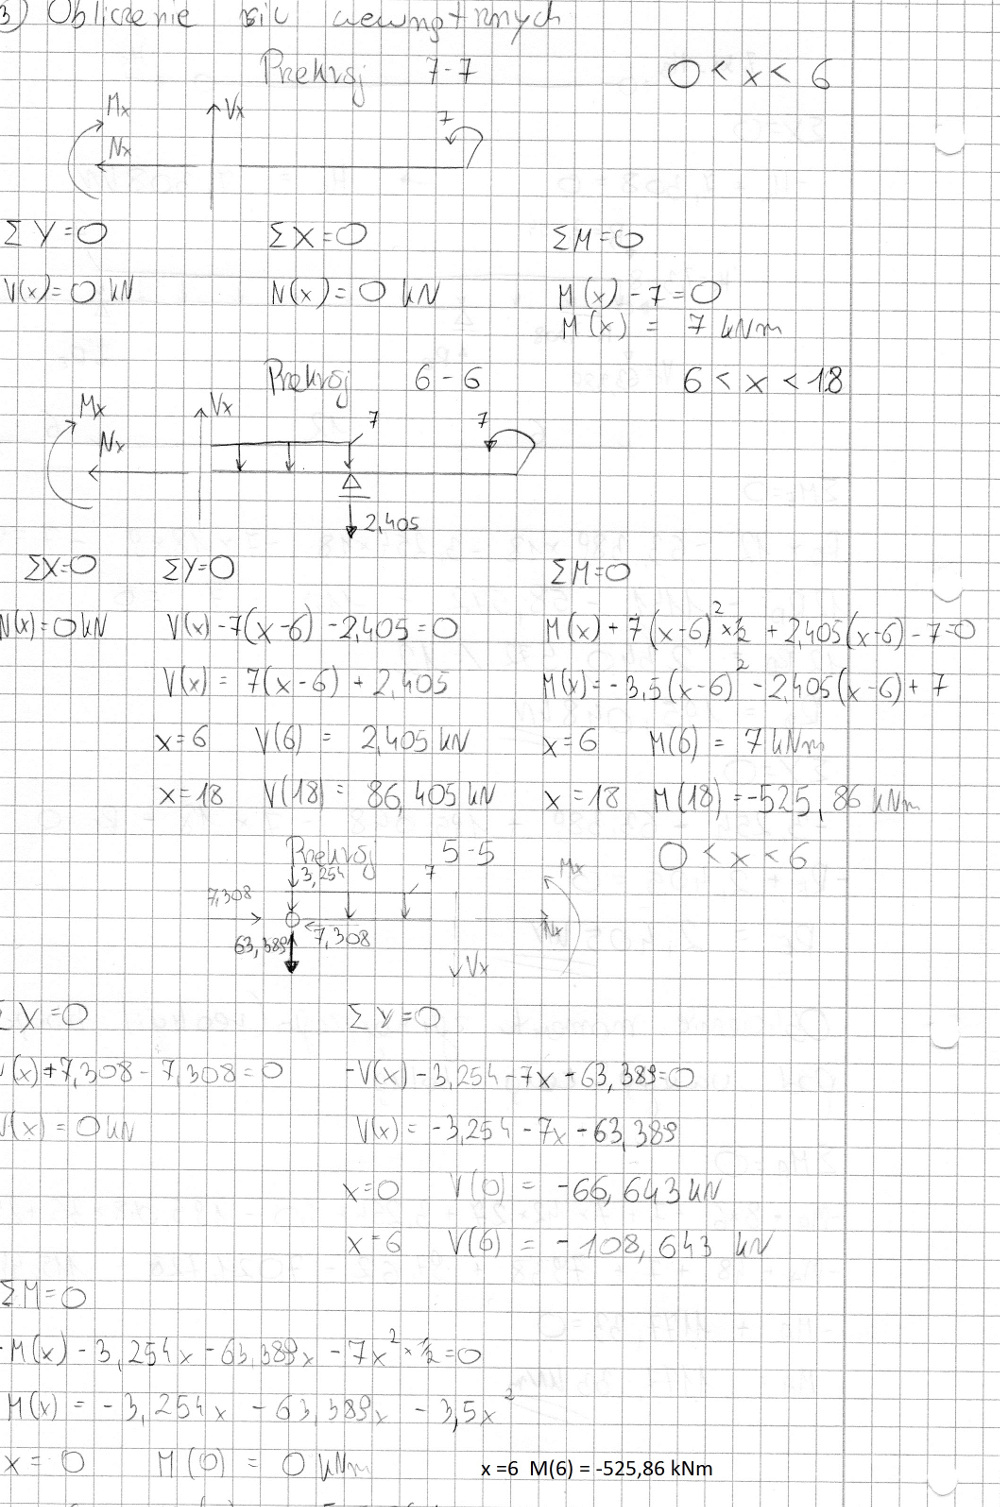 3) Obliczenie sił wewnętrznych
Przekrój 7-7 0 < x < 6
Mx Vx 7
Nx
ΣY=0 ΣX=0 ΣM=0
V(x)=0 kN N(x)=0 kN M(x)-7=0
M(x) = 7 kNm
Przekrój 6-6 6 < x < 18
Mx Vx 7 7
Nx
2,405
ΣX=0 ΣY=0 ΣM=0
N(x)=0kN V(x)-7(x-6)-2,405=0 M(x)+7(x-6)²×½+2,405(x-6)-7=0
V(x)= 7(x-6)+2,405 M(x)=-3,5(x-6)²-2,405(x-6)+7
x=6 V(6) = 2,405 kN x=6 M(6) = 7 kNm
x=18 V(18) = 86,405 kN x=18 M(18) =-525,86 kNm
Przekrój 5-5 0 < x < 6
3,254 7 Mx
7,308
Nx
63,389 7,308
Vx
ΣX=0 ΣY=0
(x)+7,308-7,308=0 -V(x)-3,254-7x-63,389=0
(x)=0kN V(x)=-3,254-7x-63,389
x=0 V(0) = -66,643 kN
x=6 V(6) = -108,643 kN
ΣM=0
-M(x)-3,254x-63,389x-7x²×½=0
M(x) = -3,254x - 63,389x - 3,5x²
x=0 M(0) = 0 kNm x =6 M(6) = -525,86 kNm